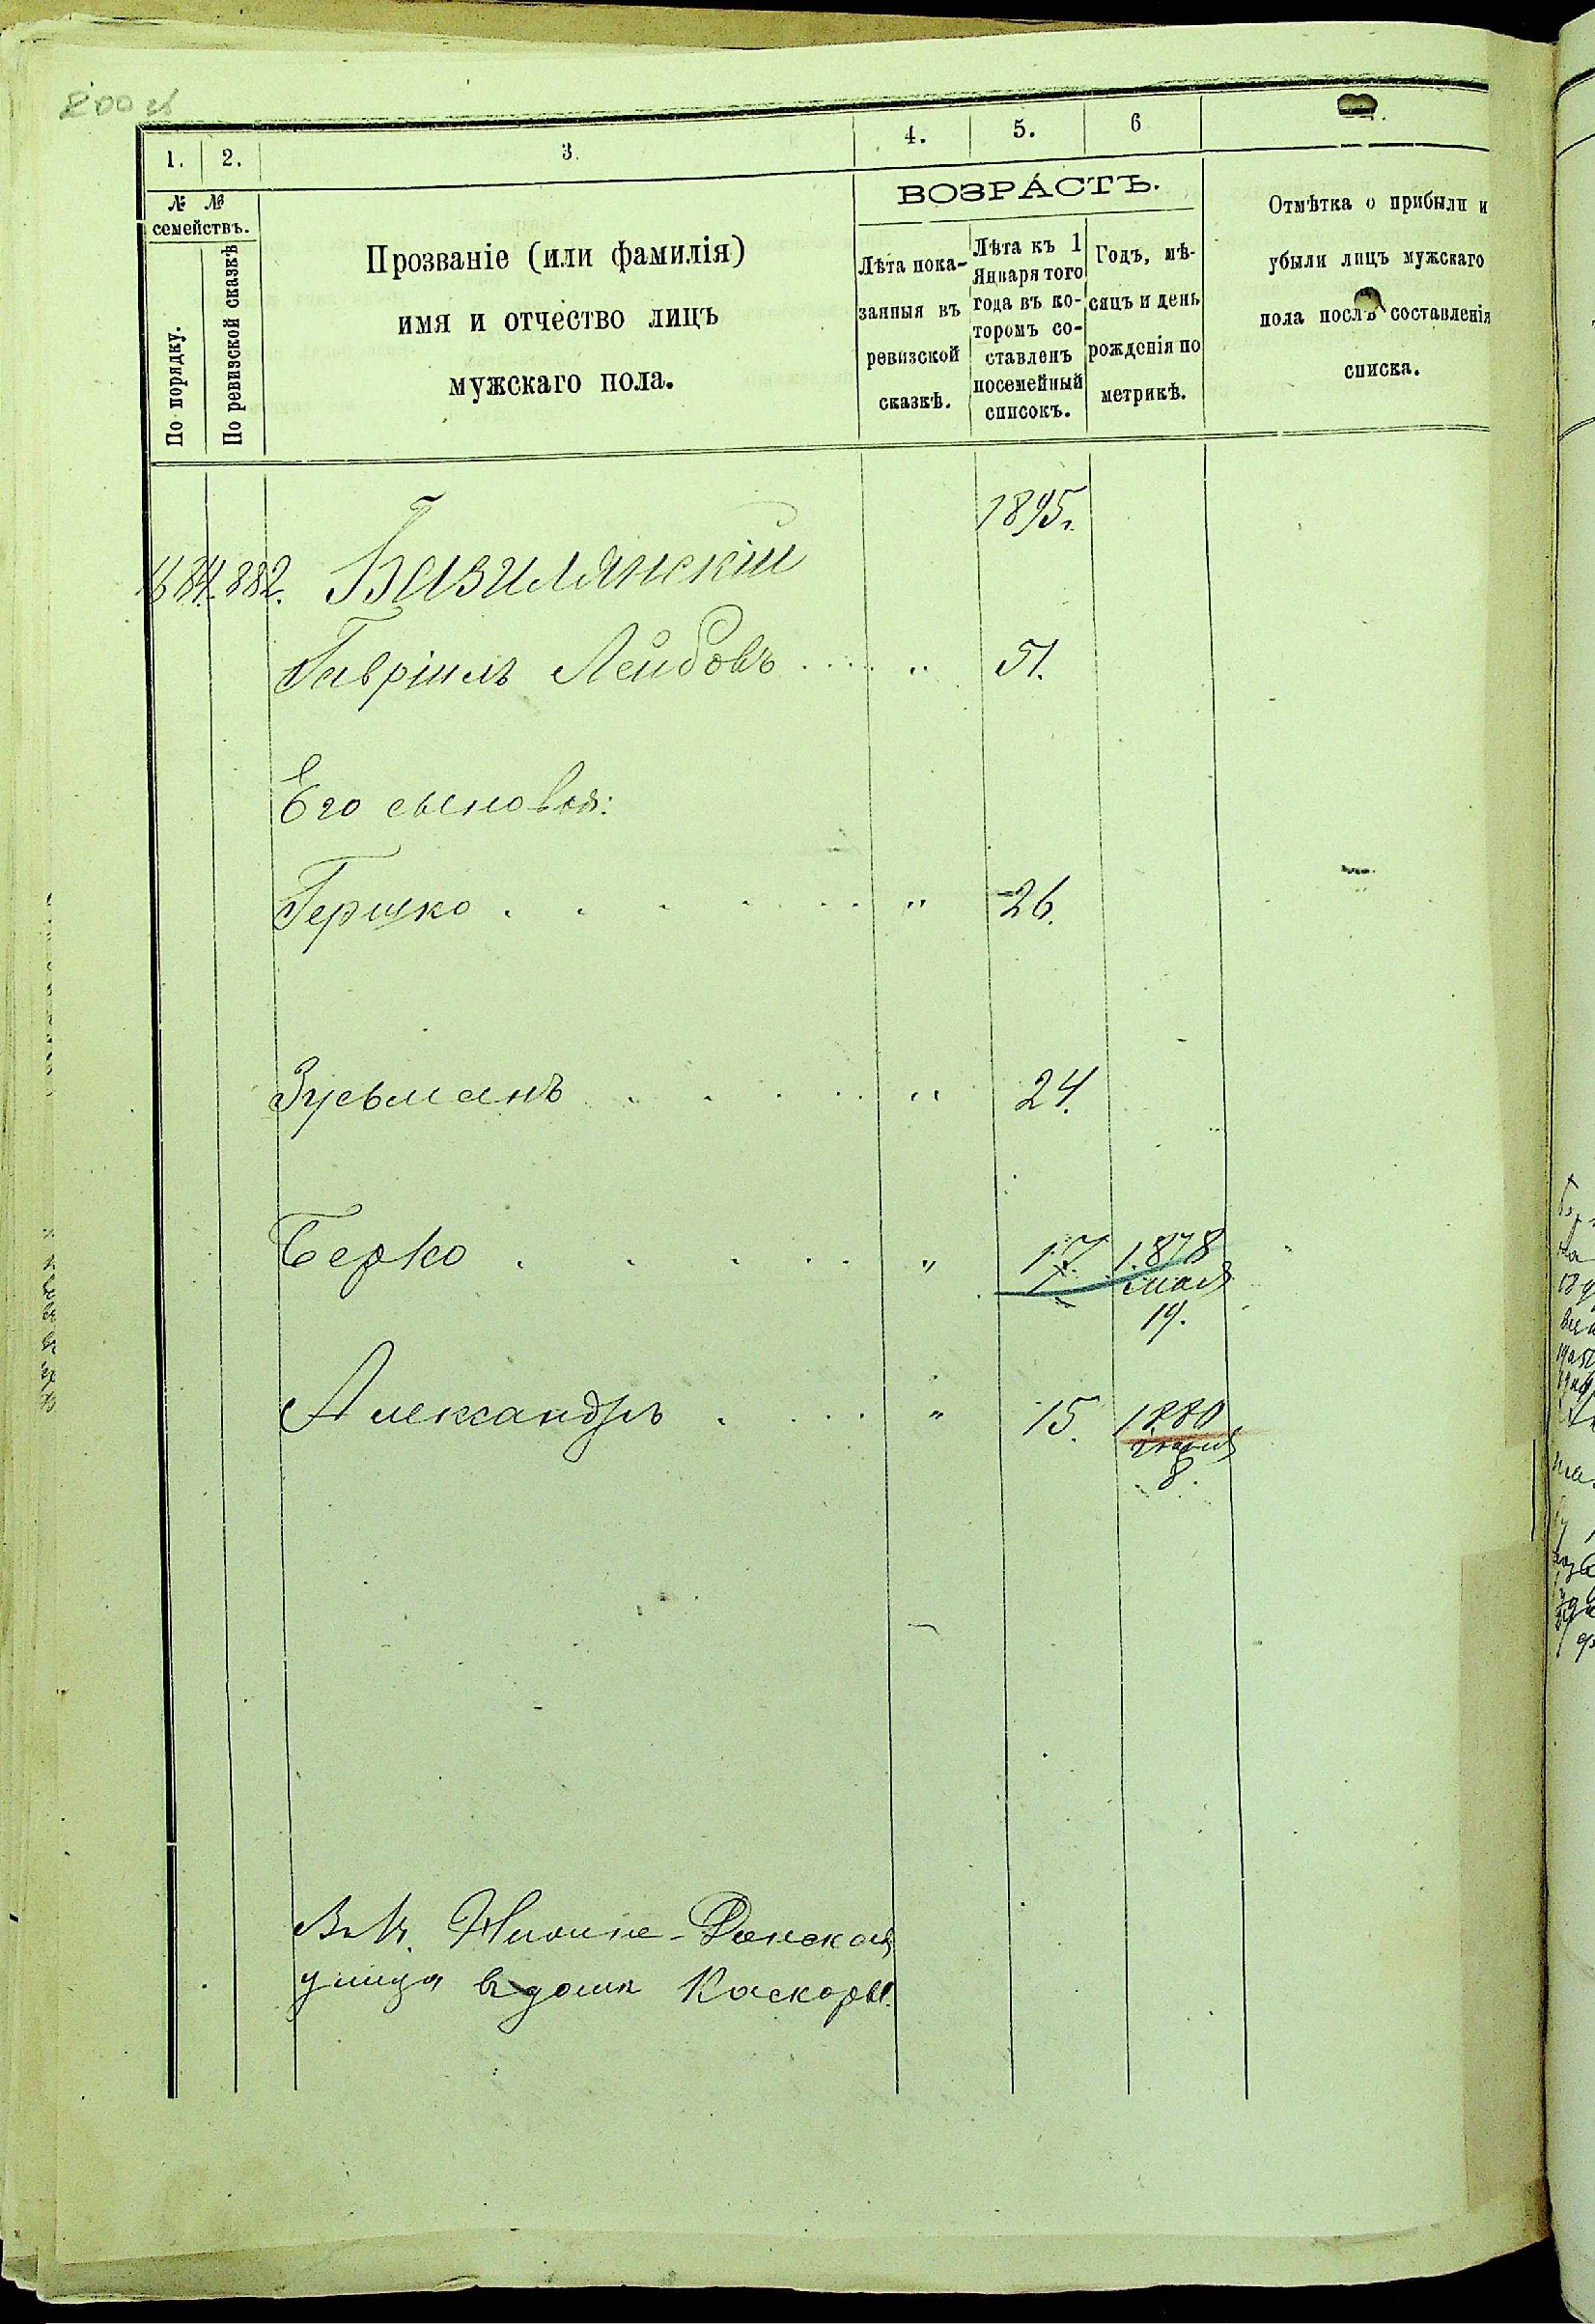 1. 2. 3. 4. 5. 6
№ №
семействъ.
По порядку.
По ревизской сказкѣ
Прозваніе (или фамилія)
имя и отчество лицъ
мужскаго пола.
ВОЗРАСТЪ.
Лѣта пока-
занныя въ
ревизской
сказкѣ.
Лѣта къ 1
Января того
года въ ко-
торомъ со-
ставленъ
посемейный
списокъ.
Годъ, мѣ-
сяцъ и день
рожденія по
метрикѣ.
Отмѣтка о прибыли и
убыли лицъ мужскаго
пола послѣ составленія
списка.
1895.
882. Базилянскій
Гавріилъ Лейбовъ 51.
Его сыновья:
Гершко 26.
Зусьманъ 24.
Берко 17. 1878
мая
19.
Александръ 15. 1880
8.
Донская
улица въ домѣ